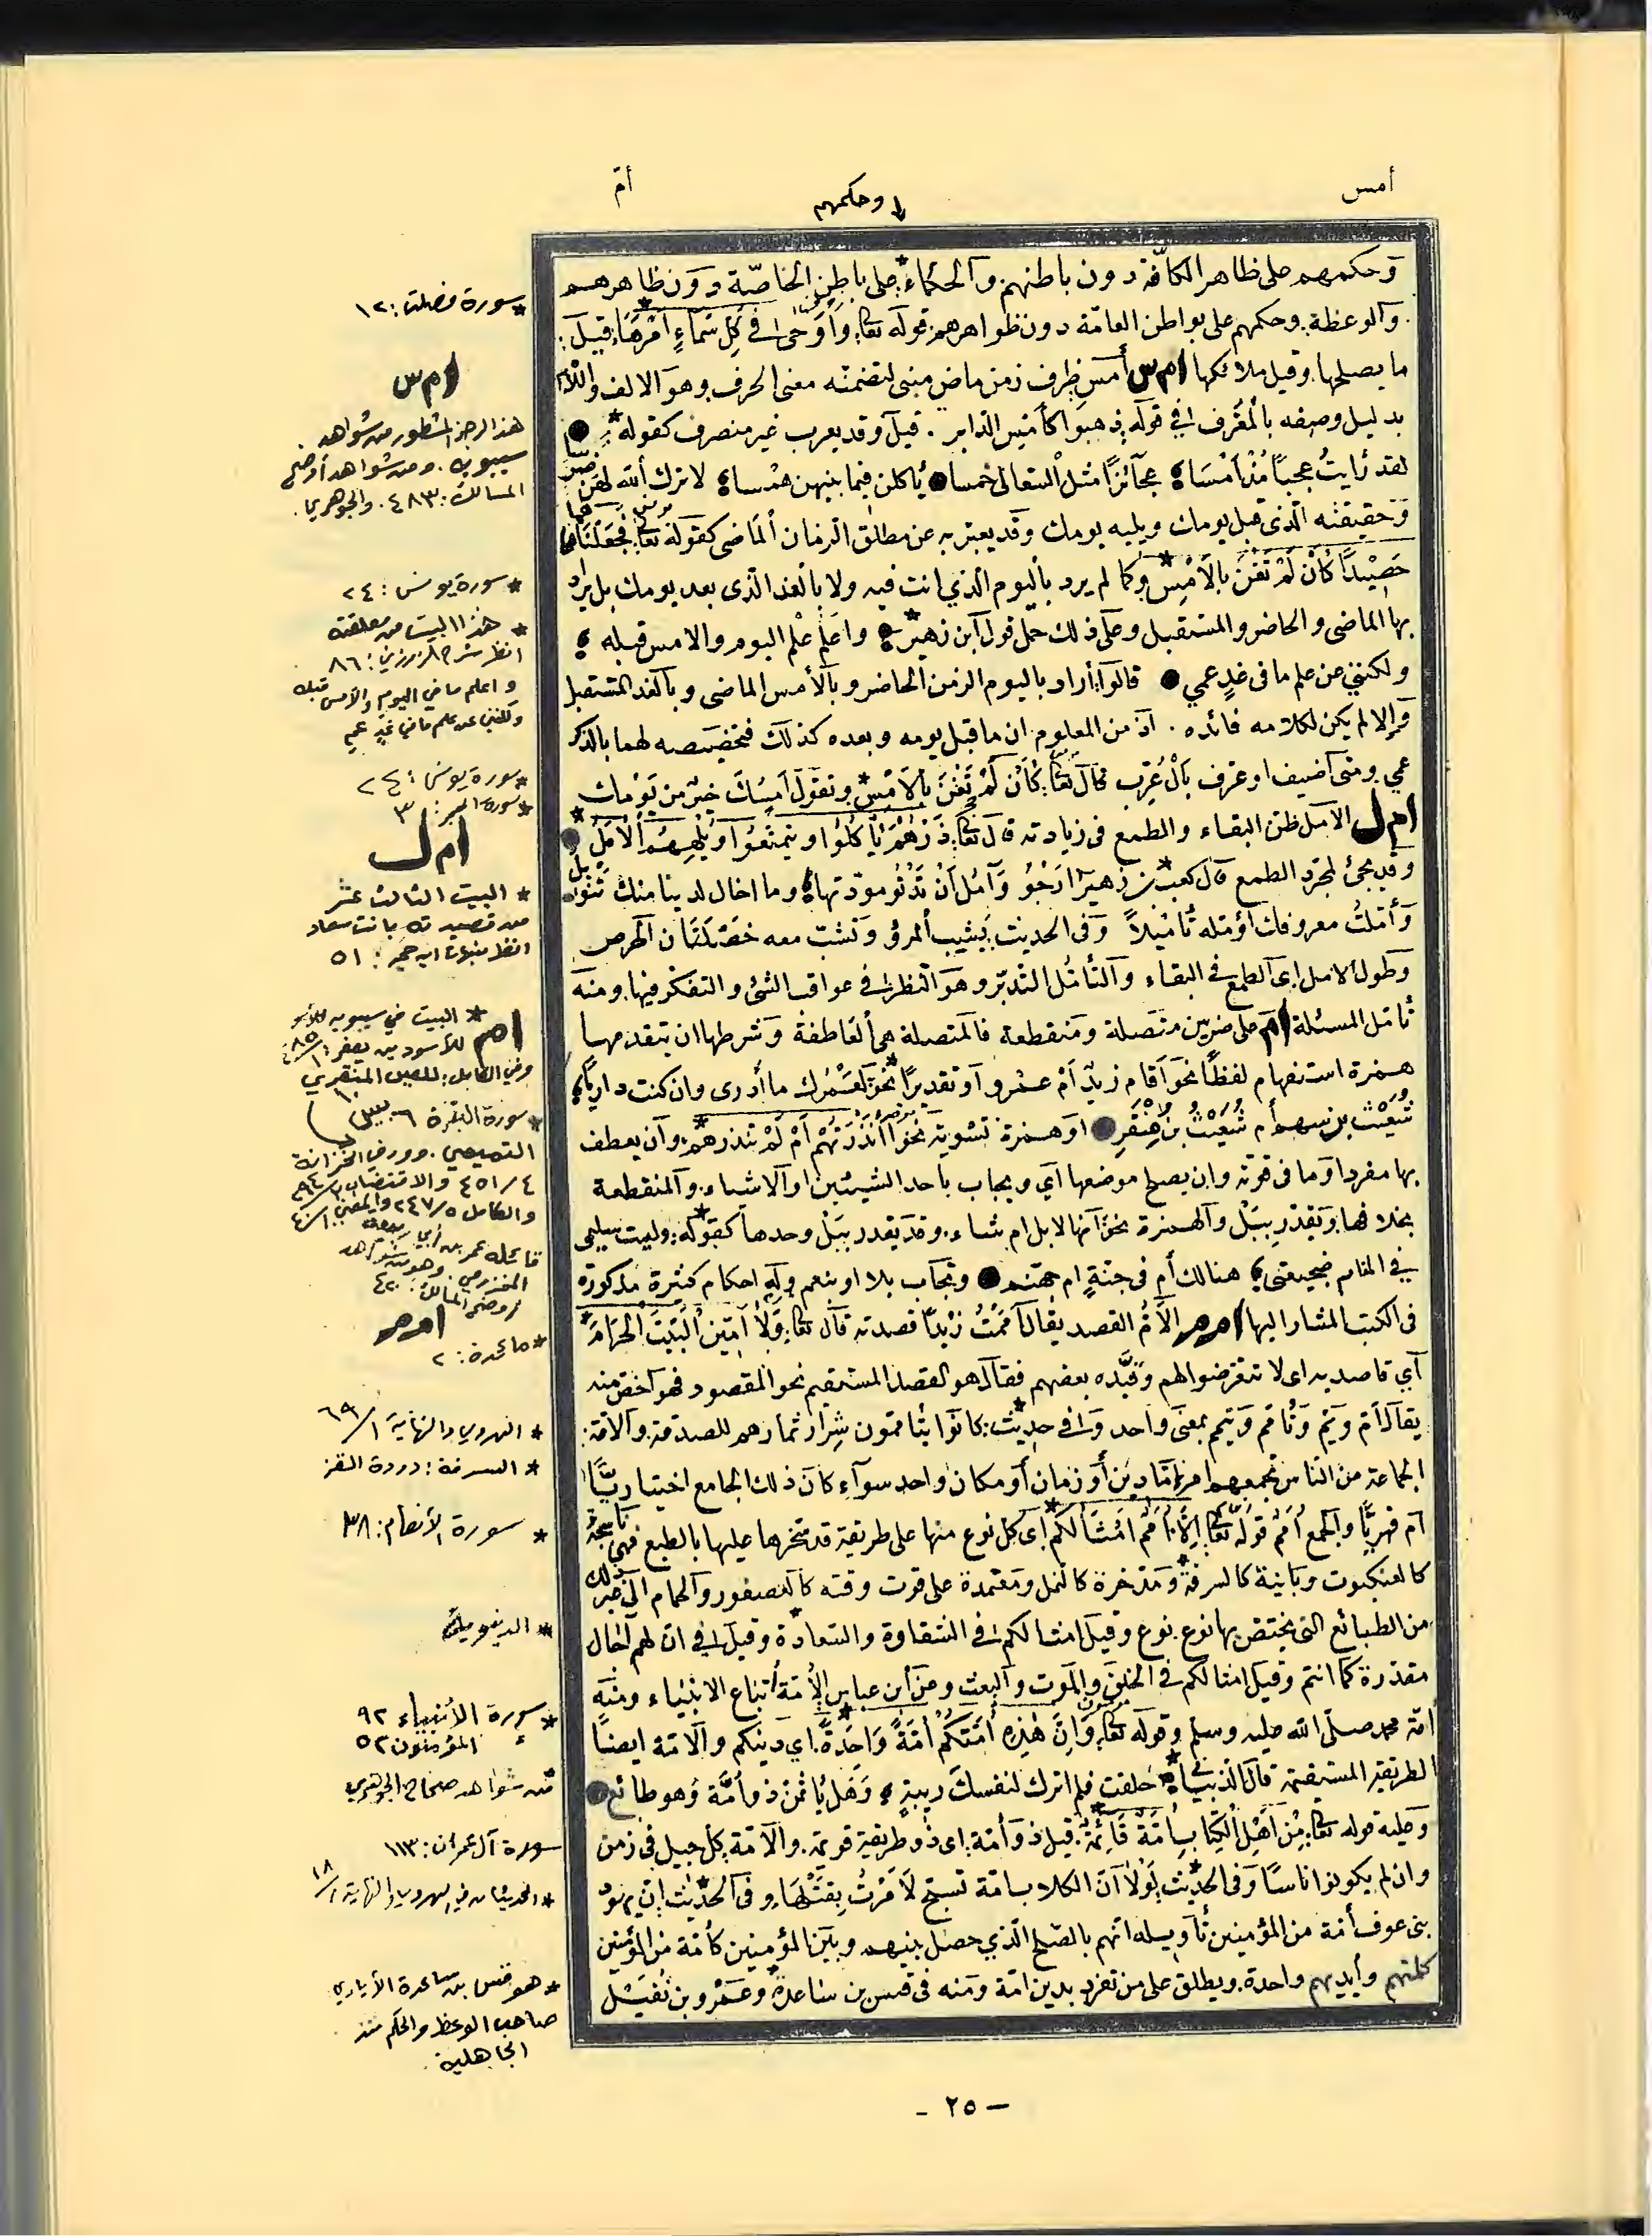 أمس
أمّ
وحكمهم
وحكمهم على ظاهر الكافّة دون باطنهم. والحكماء على باطن الخاصّة دون ظاهرهم
والوعظة. وحكمهم على بواطن العامّة دون ظواهرهم. قوله تعا: وَأَوْحَى في كُلِّ سَمَاءٍ أَمْرَهَا قيل:
ما يصلحها وقيل ملائكتها ا م س أمس ظرف زمن ماض مبنى لتضمنه معنى الحرف وهو الالف واللام
بدليل وصفه بالمعرف في قوله ذهبوا كأمس الدابر. قيل وقد يعرب غير منصرف كقوله
لقد رأيت عجبًا مذ أمسا عجائزًا مثل السعالى خمسا يأكلن فيما بينهن همسا لا ترك الله لهن ضرسا
وحقيقته الذى قبل يومك ويليه يومك وقد يعبّر به عن مطلق الزمان الماضى كقوله تعا: فَجَعَلْنَاهَا
حَصِيدًا كَأَنْ لَمْ تَغْنَ بِالأَمْسِ وكما لم يرد باليوم الذي انت فيه ولا بالغد الذى بعد يومك بل يراد
بها الماضى والحاضر والمستقبل وعلى ذلك حمل قول ابن زهير واعلم علم اليوم والامس قبله
ولكننى عن علم ما فى غدٍ عمي قالوا: أراد باليوم الزمن الحاضر وبالأمس الماضى وبالغد المستقبل
والا لم يكن لكلامه فائده. اذ من المعلوم ان ما قبل يومه وبعده كذلك فتخصيصه لهما بالذكر
عمي ومتى أضيف او عرف بال عُرب قال تعا: كَأَنْ لَمْ تَغْنَ بِالأَمْسِ وتقول أمسك خير من يومك
ا م ل الامل ظن البقاء والطمع فى زيادته قال تعا: ذَرْهُمْ يَأْكُلُوا وَيَتَمَتَّعُوا وَيُلْهِهِمُ الأَمَلُ
وقد يجئ لمجرد الطمع قال كعب بن زهير أرجو وآمل أن تدنو مودتها وما اخال لدينا منك تنويل
وأمّلتُ معروفك اؤمله تأميلاً وفى الحديث: يشيب المرؤ وتشبّ معه خصلتان الحرص
وطول الامل اى الطمع في البقاء والتأمّل التدبّر وهو النظر في عواقب الشئ والتفكر فيها. ومنه
تأمل المسئلة أم على ضربين متصلة ومنقطعة فالمتصلة هي العاطفة وشرطها ان يتقدمها
همزة استفهام لفظًا نحو أقام زيد أم عمرو أو تقديرًا نحو: لعمرك ما أدرى وان كنت داريًا
شعيث بن سهم أم شعيث بن منقر او همزة تسوية نحو أَأَنْذَرْتَهُمْ أَمْ لَمْ تُنْذِرْهُمْ. وأن يعطف
بها مفرد او ما فى قوته وان يصلح موضعها أي ويجاب باحد الشيئين او الاشياء. والمنقطعة
بخلافها: وتقدر ببل والهمزة نحو: انها لابل ام شاء. وقد يقدر ببل وحدها كقوله: وليت سليمى
في المنام ضجيعتى هنالك أم فى جنةٍ ام جهنم وتجاب بلا او بنعم وله احكام كثيرة مذكورة
فى الكتب المشار اليها ا م م الأمّ القصد يقال أممت زيدًا قصدته قال تعا: وَلَا آمِّينَ الْبَيْتَ الْحَرَامَ
أي قاصديه اى لا تتعرضوا لهم وقيّده بعضهم فقال هو القصد المستقيم نحو المقصود فهو أخص منه
يقال أمّ ويمّ وتأمّم وتيمم بمعنى واحد وفي حديث: كانوا يتأممون شرار ثمارهم للصدقة. والامّة:
الجماعة من الناس تجمعهم امر اما دين أو زمان أو مكان واحد سوآء كان ذلك الجامع اختياريًّا
أم قهريًّا والجمع أمم قوله تعا: إِلَّا أُمَمٌ أَمْثَالُكُمْ اى كل نوع منها على طريقة قد سخرها عليها بالطبع فهى ناسجة
كالعنكبوت وبانية كالسرفة ومدّخرة كالنمل ومعتمدة على قوت وقته كالعصفور والحمام الى غير ذلك
من الطبائع التى يختص بها نوع نوع وقيل امثالكم في الشقاوة والسعادة وقيل في ان لهم آجال
مقدرة كما انتم وقيل امثالكم في الخلق والموت والبعث وعن ابن عباس الأمة أتباع الانبياء ومنه
امّة محمد صلّى الله عليه وسلم وقوله تعا: وَإِنَّ هَذِهِ أُمَّتُكُمْ أُمَّةً وَاحِدَةً. أي دينكم والامّة ايضًا
الطريقة المستقيمة قال الذبياني حلفت فلم اترك لنفسك ريبة وهل يأثمن ذو أمّة وهو طائع
وعليه قوله تعا: مِنْ أَهْلِ الْكِتَابِ أُمَّةٌ قَائِمَةٌ: قيل ذو أمة اى ذو طريقة قويمة. والامّة: كل جيل فى زمن
وان لم يكونوا اناسًا وفى الحديث: لولا أن الكلاب امّة تسبح لأمرت بقتلها. وفى الحديث إنّ يهود
بني عوف أمة من المؤمنين تأويله انهم بالصلح الذي حصل بينهم وبين المؤمنين كأمة من المؤمنين
كلمتهم وأيديهم واحدة. ويطلق على من تفرد بدين امّة ومنه فى قس بن ساعدة وعمرو بن نفيل
* سورة فصلت: ١٢
ا م س
هذا الرجز المشطور من شواهد
سيبويه. ومن شواهد أوضح
المسالك: ٤٨٣. والجوهري.
* سورة يونس: ٢٤
* هذا البيت من معلقته
انظر شرح الزوزني: ٨٦
واعلم ما في اليوم والأمس قبله
ولكنني عن علم ما في غدٍ عم
* سورة يونس: ٢٤
* سورة الحجر: ٣
ا م ل
* البيت الثالث عشر
من قصيدته بانت سعاد
٥١
* البيت في سيبويه
ا م م للأسود بن يعفر: ١/٤٨٥
وفي الكامل: للعين المنقري
* سورة البقرة ٦
التميمي. وورد في الخزانة
٤/٤٥١ والاقتضاب
والكامل ٥/٢٤٧ والمغني ١/٤٠
قائله عمر بن أبي ربيعة
المخزومي. وهو من شواهد
أوضح المسالك: ٤٢٠
ا م م
* مائدة: ٢
* الهروي والنهاية ١/٦٩
* السرفة: دودة القز
* سورة الأنعام: ٣٨
* سورة الأنبياء ٩٢
المؤمنون ٥٢
من شواهد صحاح الجوهري
سورة آل عمران: ١١٣
* الحديثان في الهروي والنهاية ١/٦٨
* هو قس بن ساعدة الأيادي
صاحب الوعظ والحكم منذ
الجاهلية.
- ٢٥ -